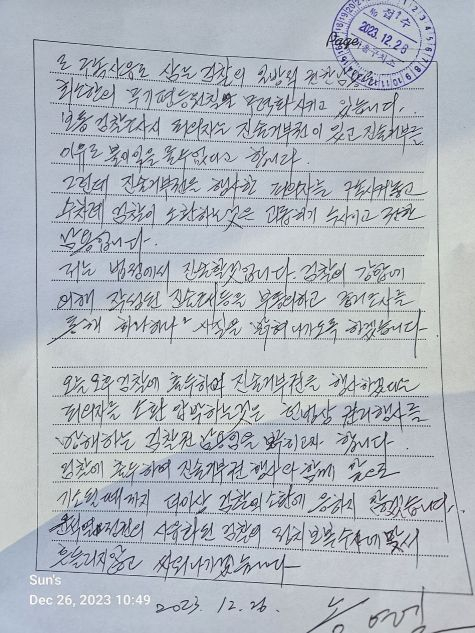 Page
접수
2023.12.26
로 구속사유로 삼는 검찰의 일방의 권한남용은
최소한의 무기평등원칙도 무력화시키고 있습니다.
보통 검찰조사시 피의자는 진술거부권이 있고 진술거부를
이유로 불이익을 줄 수 없다고 합니다.
그런데 진술거부권을 행사한 피의자를 구속시켜놓고
수차례 검찰이 소환하는것은 괴롭히기 수사이고 권한
남용입니다.
저는 법정에서 진술할것입니다. 검찰의 강압에
의해 작성된 진술조서들을 부동의하고 증거조사를
통해 하나하나 사실을 밝혀 나가도록 하겠습니다.
오늘 오후 검찰에 출두하여 진술거부권을 행사하겠다는
피의자를 소환 압박하는것은 헌법상 권리행사를
방해하는 검찰권 남용임을 밝히고자 합니다.
검찰에 출두하여 진술거부권 행사와 함께 앞으로
기소될때까지 더이상 검찰의 소환에 응하지 않겠습니다.
윤석열 정권의 사유화된 검찰의 정치보복수사에 맞서
흔들리지않고 싸워나가겠습니다.
2023. 12. 26.
송영길
Sun's
Dec 26, 2023 10:49